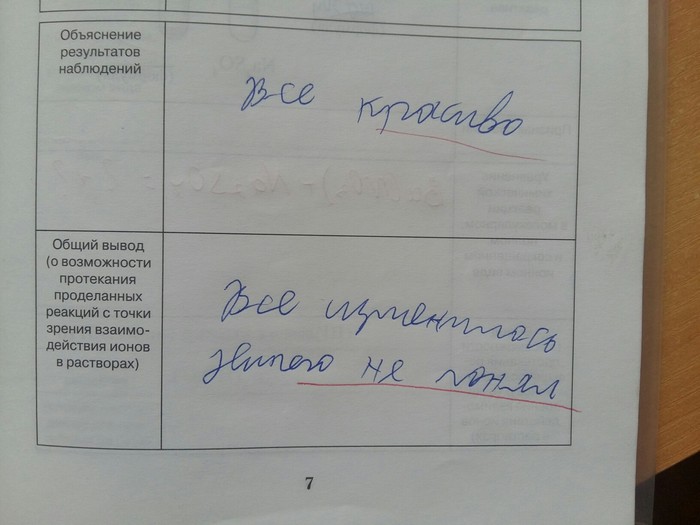 Объяснение
результатов
наблюдений
Все красиво
Общий вывод
(о возможности
протекания
проделанных
реакций с точки
зрения взаимо-
действия ионов
в растворах)
Все изменилось
не понял
7